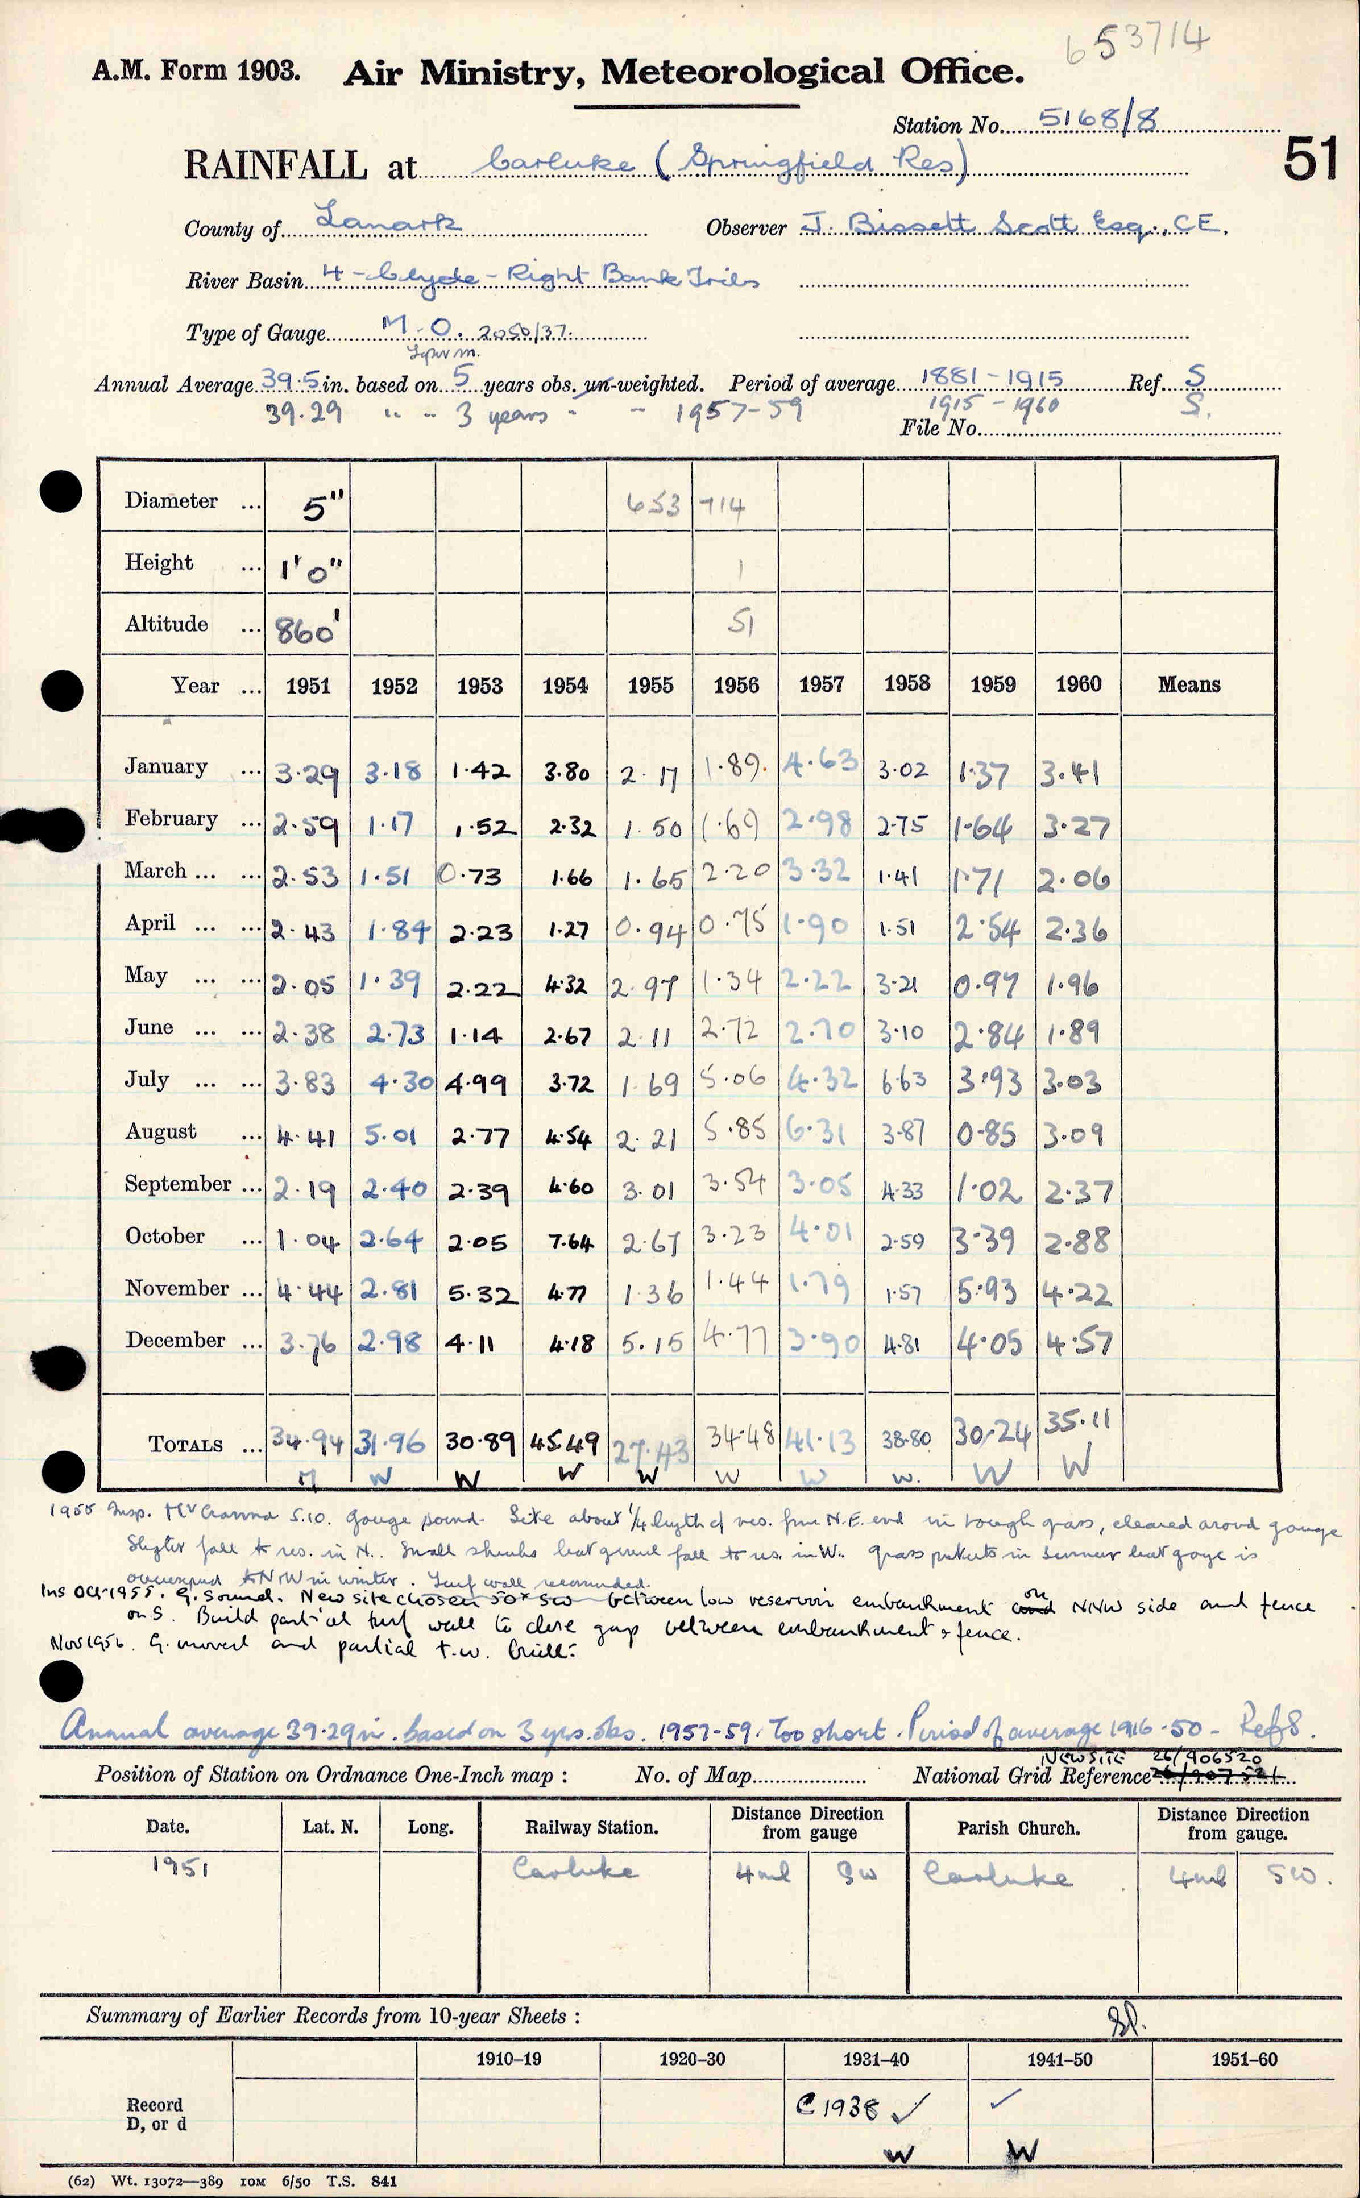 653714
A.M. Form 1903. Air Ministry, Meteorological Office.
Station No. 5168/8
RAINFALL at Carluke (Springfield Res) 51
County of Lanark Observer J. Bissett Scott Esq., C.E.
River Basin 4 - Clyde - Right Bank Tribs
Type of Gauge M.O. 2050/37.
Annual Average 39.5 in. based on 5 years obs. un-weighted. Period of average 1881-1915 Ref. S
39.29 " " 3 years " - 1957-59 1915-1960 S.
File No.
Diameter ... 5" 653 714
Height ... 1'0" 1
Altitude ... 860' 51
Year ... 1951 1952 1953 1954 1955 1956 1957 1958 1959 1960 Means
January ... 3.29 3.18 1.42 3.80 2.17 1.89 4.63 3.02 1.37 3.41
February ... 2.59 1.17 1.52 2.32 1.50 1.69 2.98 2.75 1.64 3.27
March ... ... 2.53 1.51 0.73 1.66 1.65 2.20 3.32 1.41 1.71 2.06
April ... ... 2.43 1.84 2.23 1.27 0.94 0.75 1.90 1.51 2.54 2.36
May ... ... 2.05 1.39 2.22 4.32 2.97 1.34 2.22 3.21 0.97 1.96
June ... ... 2.38 2.73 1.14 2.67 2.11 2.72 2.70 3.10 2.84 1.89
July ... ... 3.83 4.30 4.99 3.72 1.69 5.06 4.32 6.63 3.93 3.03
August ... 4.41 5.01 2.77 4.54 2.21 5.85 6.31 3.87 0.85 3.09
September ... 2.19 2.40 2.39 4.60 3.01 3.54 3.05 4.33 1.02 2.37
October ... 1.04 2.64 2.05 7.64 2.67 3.23 4.01 2.59 3.39 2.88
November ... 4.44 2.81 5.32 4.77 1.36 1.44 1.79 1.57 5.93 4.22
December ... 3.76 2.98 4.11 4.18 5.15 4.77 3.90 4.81 4.05 4.57
TOTALS ... 34.94 31.96 30.89 45.49 27.43 34.48 41.13 38.80 30.24 35.11
M W W W W W W W. W W
Insp. 5.10. gauge sound. Site about 1/4 length of res. from N.E. end in rough grass, cleared around gauge
Slighter fall to res. in N. Small shrubs but general fall to res. in W. grass in summer but gauge is
overexposed to NW in winter. Turf wall recommended.
Ins Oct 1955. G. Sound. New site chosen 50x SW between low reservoir embankment on NNW side and fence
on S. Build partial turf wall to close gap between embankment & fence.
Nov 1956. G. moved and partial t.w. built.
Annual average 39.29 in. based on 3 yrs. obs. 1957-59. Too short. Period of average 1916-50 - Ref S.
NEW SITE 26/906520
Position of Station on Ordnance One-Inch map : No. of Map National Grid Reference 26/907521
Date. Lat. N. Long. Railway Station. Distance Direction from gauge Parish Church. Distance Direction from gauge.
1951 Carluke 4ml SW Carluke 4ml SW.
Summary of Earlier Records from 10-year Sheets :
1910-19 1920-30 1931-40 1941-50 1951-60
Record
D, or d
C 1938 ✓ ✓
W W
(62) Wt. 13072—389 10M 6/50 T.S. 841